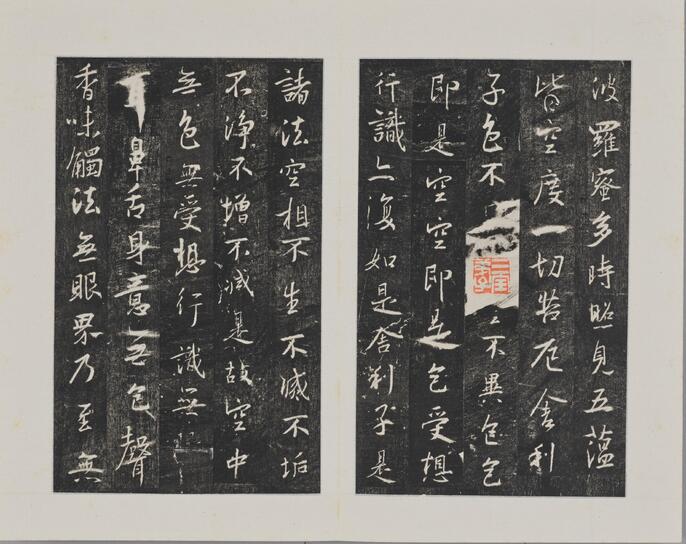 波羅蜜多時照見五蘊
皆空度一切苦厄舍利
子色不〻不異色色
即是空空即是色受想
行識亦復如是舍利子是
諸法空相不生不滅不垢
不淨不增不減是故空中
無色無受想行識無
鼻舌身意无色聲
香味觸法無眼界乃至無